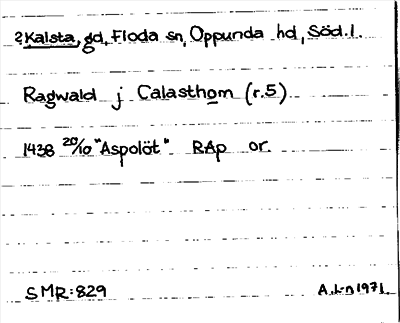 ? Kalsta, gd, Floda sn, Oppunda hd, Söd.l.
Ragwald j Calasthom (r.5)
1438 20/10 "Aspolöt" RAp or.
SMR:829 A.L-n 1971